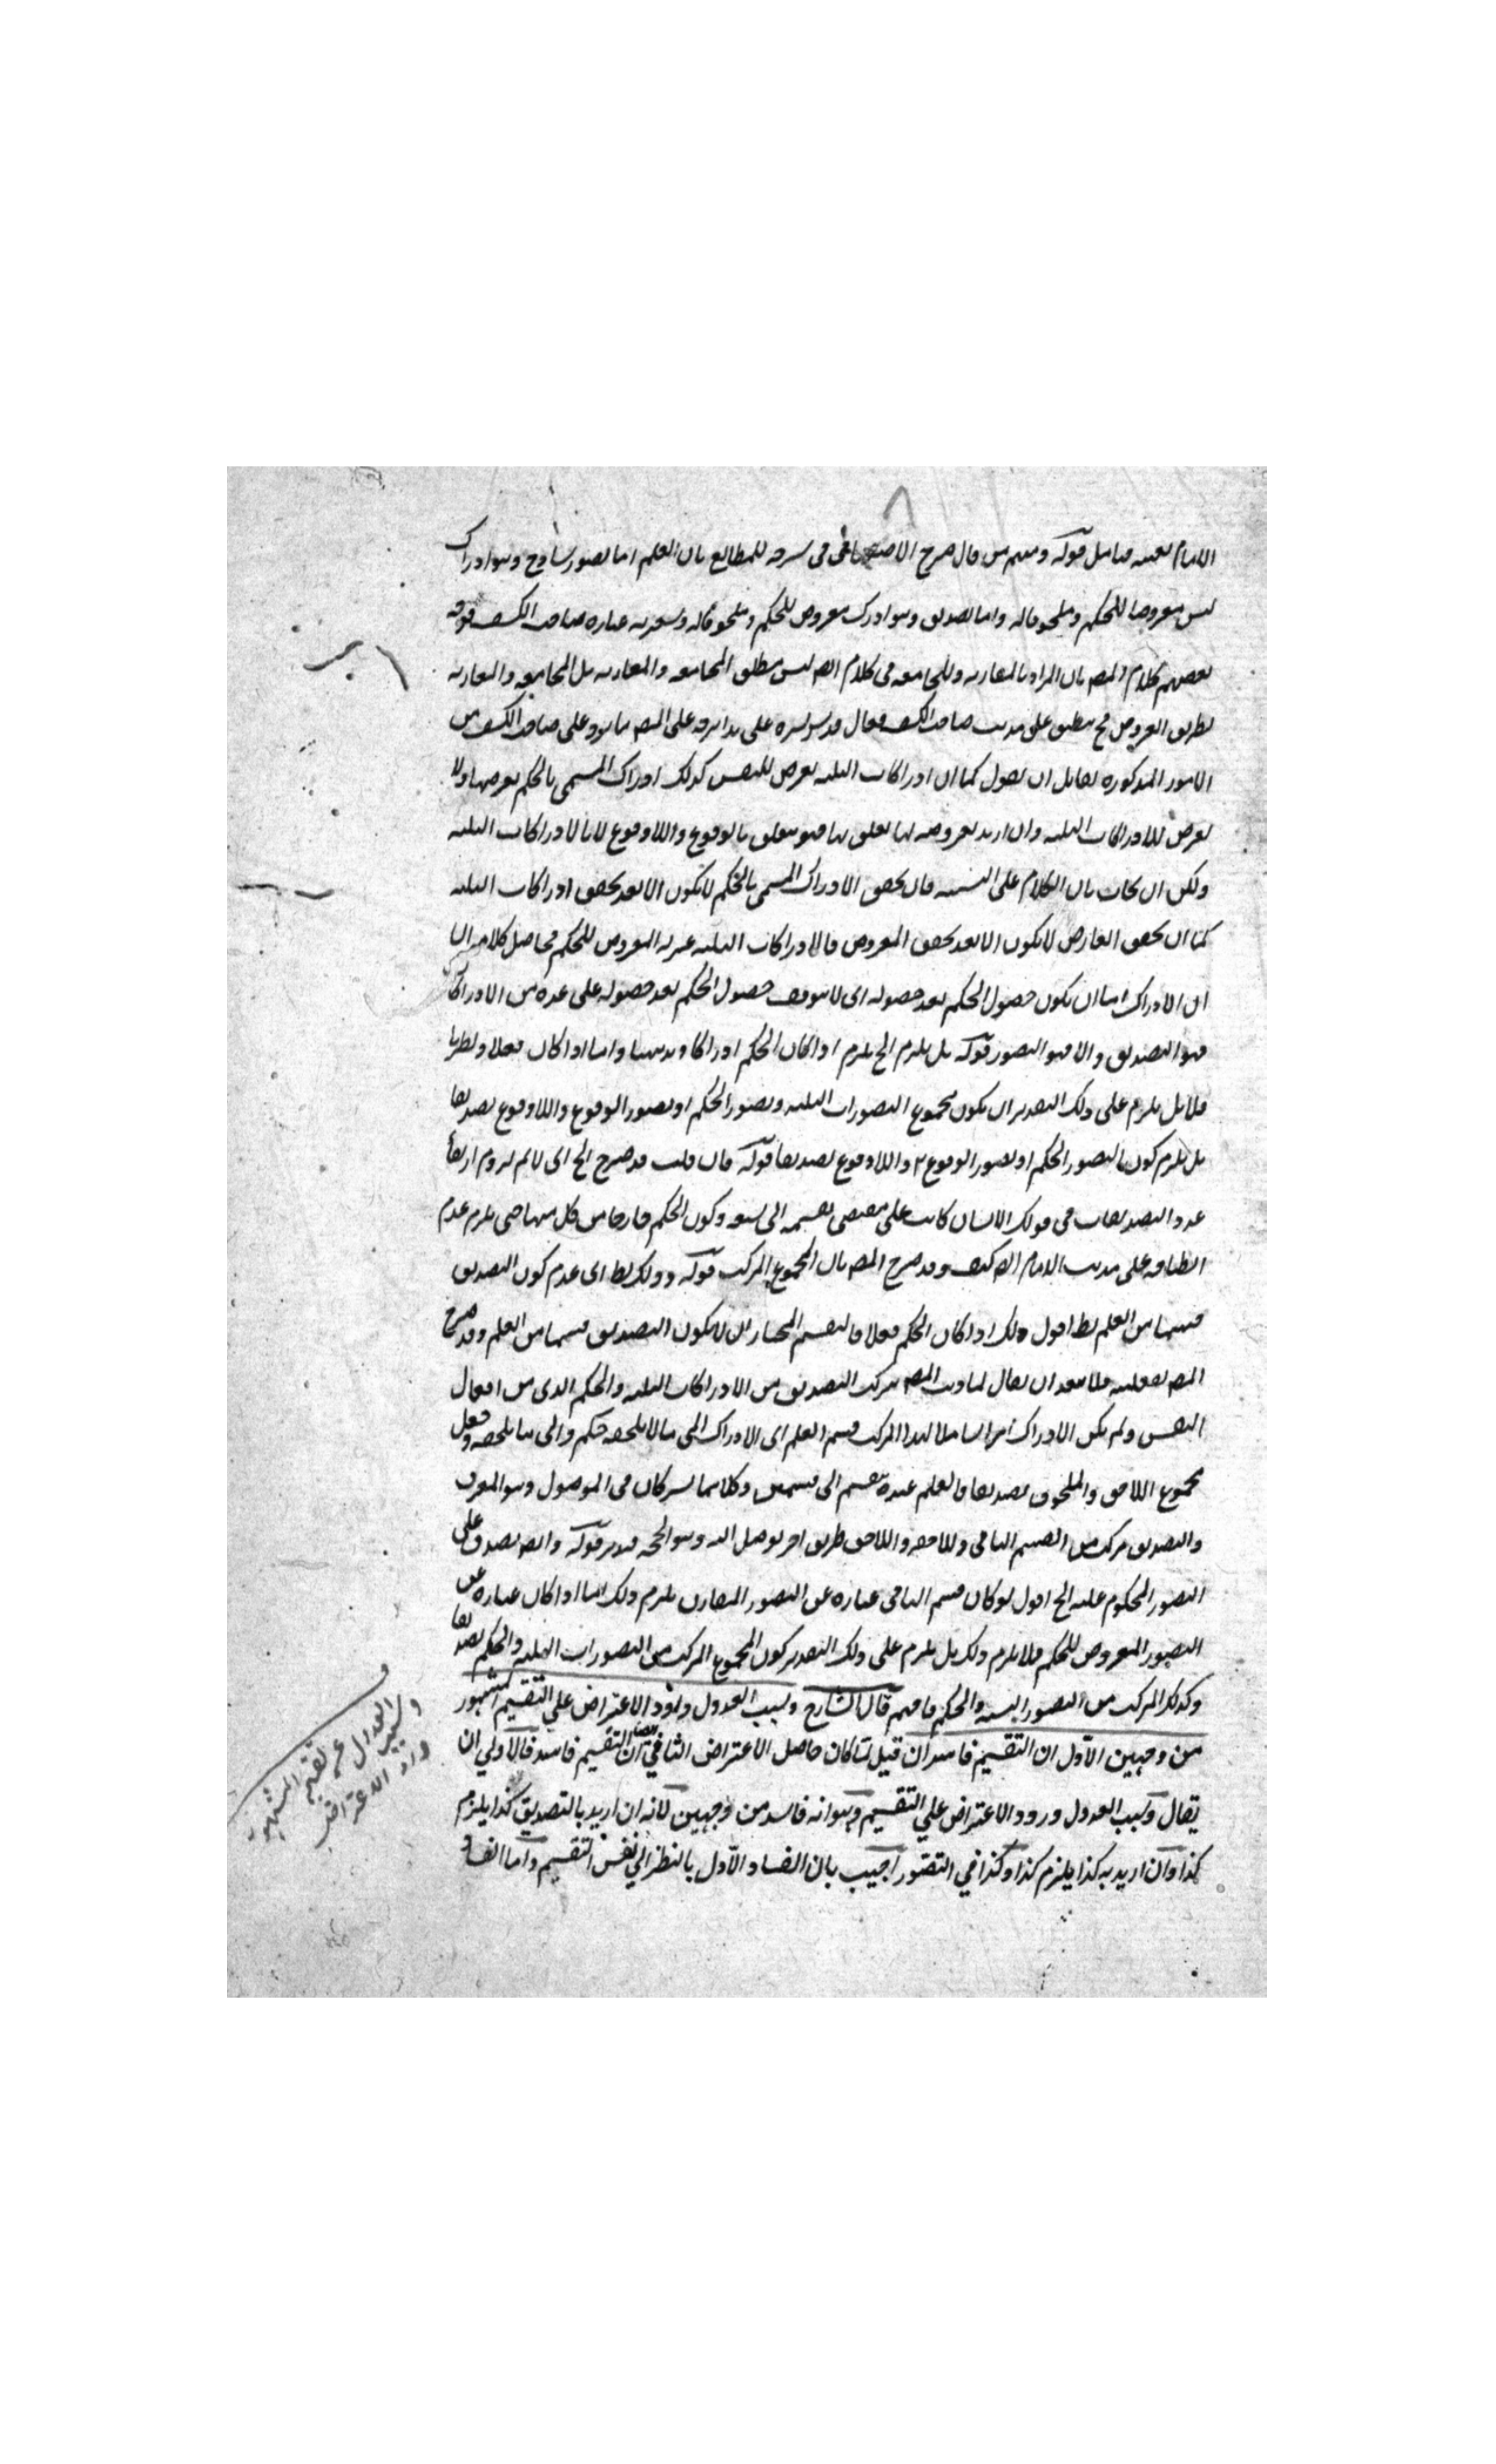 الامام نفسه فتامل قوله ومنهم من قال صرح الاصفهانى فى شرحه للمطالع بان العلم اما تصور ساذج وهو ادراك
ليس معروضا للحكم وملحوقا له واما تصديق وهو ادراك معروض للحكم وملحوقا له ويشعر به عبارة صاحب الكشف
بعضهم كلام المصـ بان المراد بالمقارنة والمجامعة فى كلام المصـ ليس مطلق المجامعة والمقارنة بل المجامعة والمقارنة
بطريق العروض فح ينطبق على مذهب صاحب الكشف فقال قدس سره على هذا يرد على المصـ ما يرد على صاحب الكشف من
الامور المذكورة لقايل ان يقول كما ان ادراكات الثلثة يعرض للنفس كذلك ادراك المسمى بالحكم يعرضها ولا
يعرض للادراكات الثلثة وان اريد بعروضه لها تعلق بها فهو متعلق بالوقوع واللاوقوع لا بالادراكات الثلثة
ولكن ان يجاب بان الكلام على التشبيه فان تحقق الادراك المسمى بالحكم لا يكون الا بعد تحقق ادراكات الثلثة
كما ان تحقق العارض لا يكون الا بعد تحقق المعروض فالادراكات الثلثة بمنزلة المعروض للحكم فحاصل كلام
ان الادراك اما ان يكون حصول الحكم بعد حصوله اى لا يتوقف حصول الحكم بعد حصوله على عدة من الادراكات
فهو التصديق والا فهو التصور قوله بل يلزم الخ يلزم اذا كان الحكم ادراكا وبديهيا واما اذا كان فعلا ونظريا
فلا بل يلزم على ذلك التقدير ان يكون مجموع التصورات الثلثة وتصور الحكم او تصور الوقوع واللاوقوع تصديقا
بل يلزم كون التصور الحكم او تصور الوقوع واللاوقوع تصديقا قوله فان قلت قد صرح الخ اى لا نم لزوم ارتقأ
عدد التصديقات فى قولك الانسان كاتب على مقتضى تقسيمه الى تسعة وكون الحكم خارجا من كل منها حتى يلزم عدم
انطباقه على مذهب الامام الخ كيف وقد صرح المصـ بان المجموع المركب قوله وذلك بط اى عدم كون التصديق
قسما من العلم بط اقول ذلك اذا كان الحكم فعلا فالتقسيم المختار ان لا يكون التصديق قسما من العلم وقد صرح
المصـ بفعليته فلا يبعد ان يقال لما ذهب المصـ بتركب التصديق من الادراكات الثلثة والحكم الذى من افعال
النفس ولم يكن الادراك امرا شاملا لهذا المركب قسم العلم اى الادراك الى ما لا يلحقه حكم والى ما يلحقه وجعل
مجموع اللاحق والملحوق تصديقا فالعلم عنده ينقسم الى قسمين وكلاهما يشتركان فى الموصل وهو المعرف
والتصديق مركب من القسم الثانى وللاحقه واللاحق طريق اخر يوصل اليه وهو الحجة فتدبر قوله وانه يصدق على
التصور المحكوم عليه الخ اقول لو كان قسم الثانى عبارة عن التصور المقارن يلزم ذلك اما اذا كان عبارة عن
التصور المعروض للحكم فلا يلزم ذلك بل يلزم على ذلك التقدير كون المجموع المركب من التصورات الثلثة والحكم تصديقا
وكذلك المركب من التصور النسبة والحكم فافهم قال الشارح وسبب العدول ورود الاعتراض علي التقسيم المشهور
من وجهين الاول ان التقسيم فاسد ان قيل لما كان حاصل الاعتراض الثاني ايضا ان التقسيم فاسد فالاولي ان
يقال وسبب العدول ورود الاعتراض علي التقسيم وهو انه فاسد من وجهين لانه ان اريد بالتصديق كذا يلزم
كذا وان اريد به كذا يلزم كذا وكذا في التصور اجيب بان الفساد الاول بالنظر الي نفس التقسيم واما الفسا
وسبب
العدول عن تقسيم المشهور
ورود الاعتراض